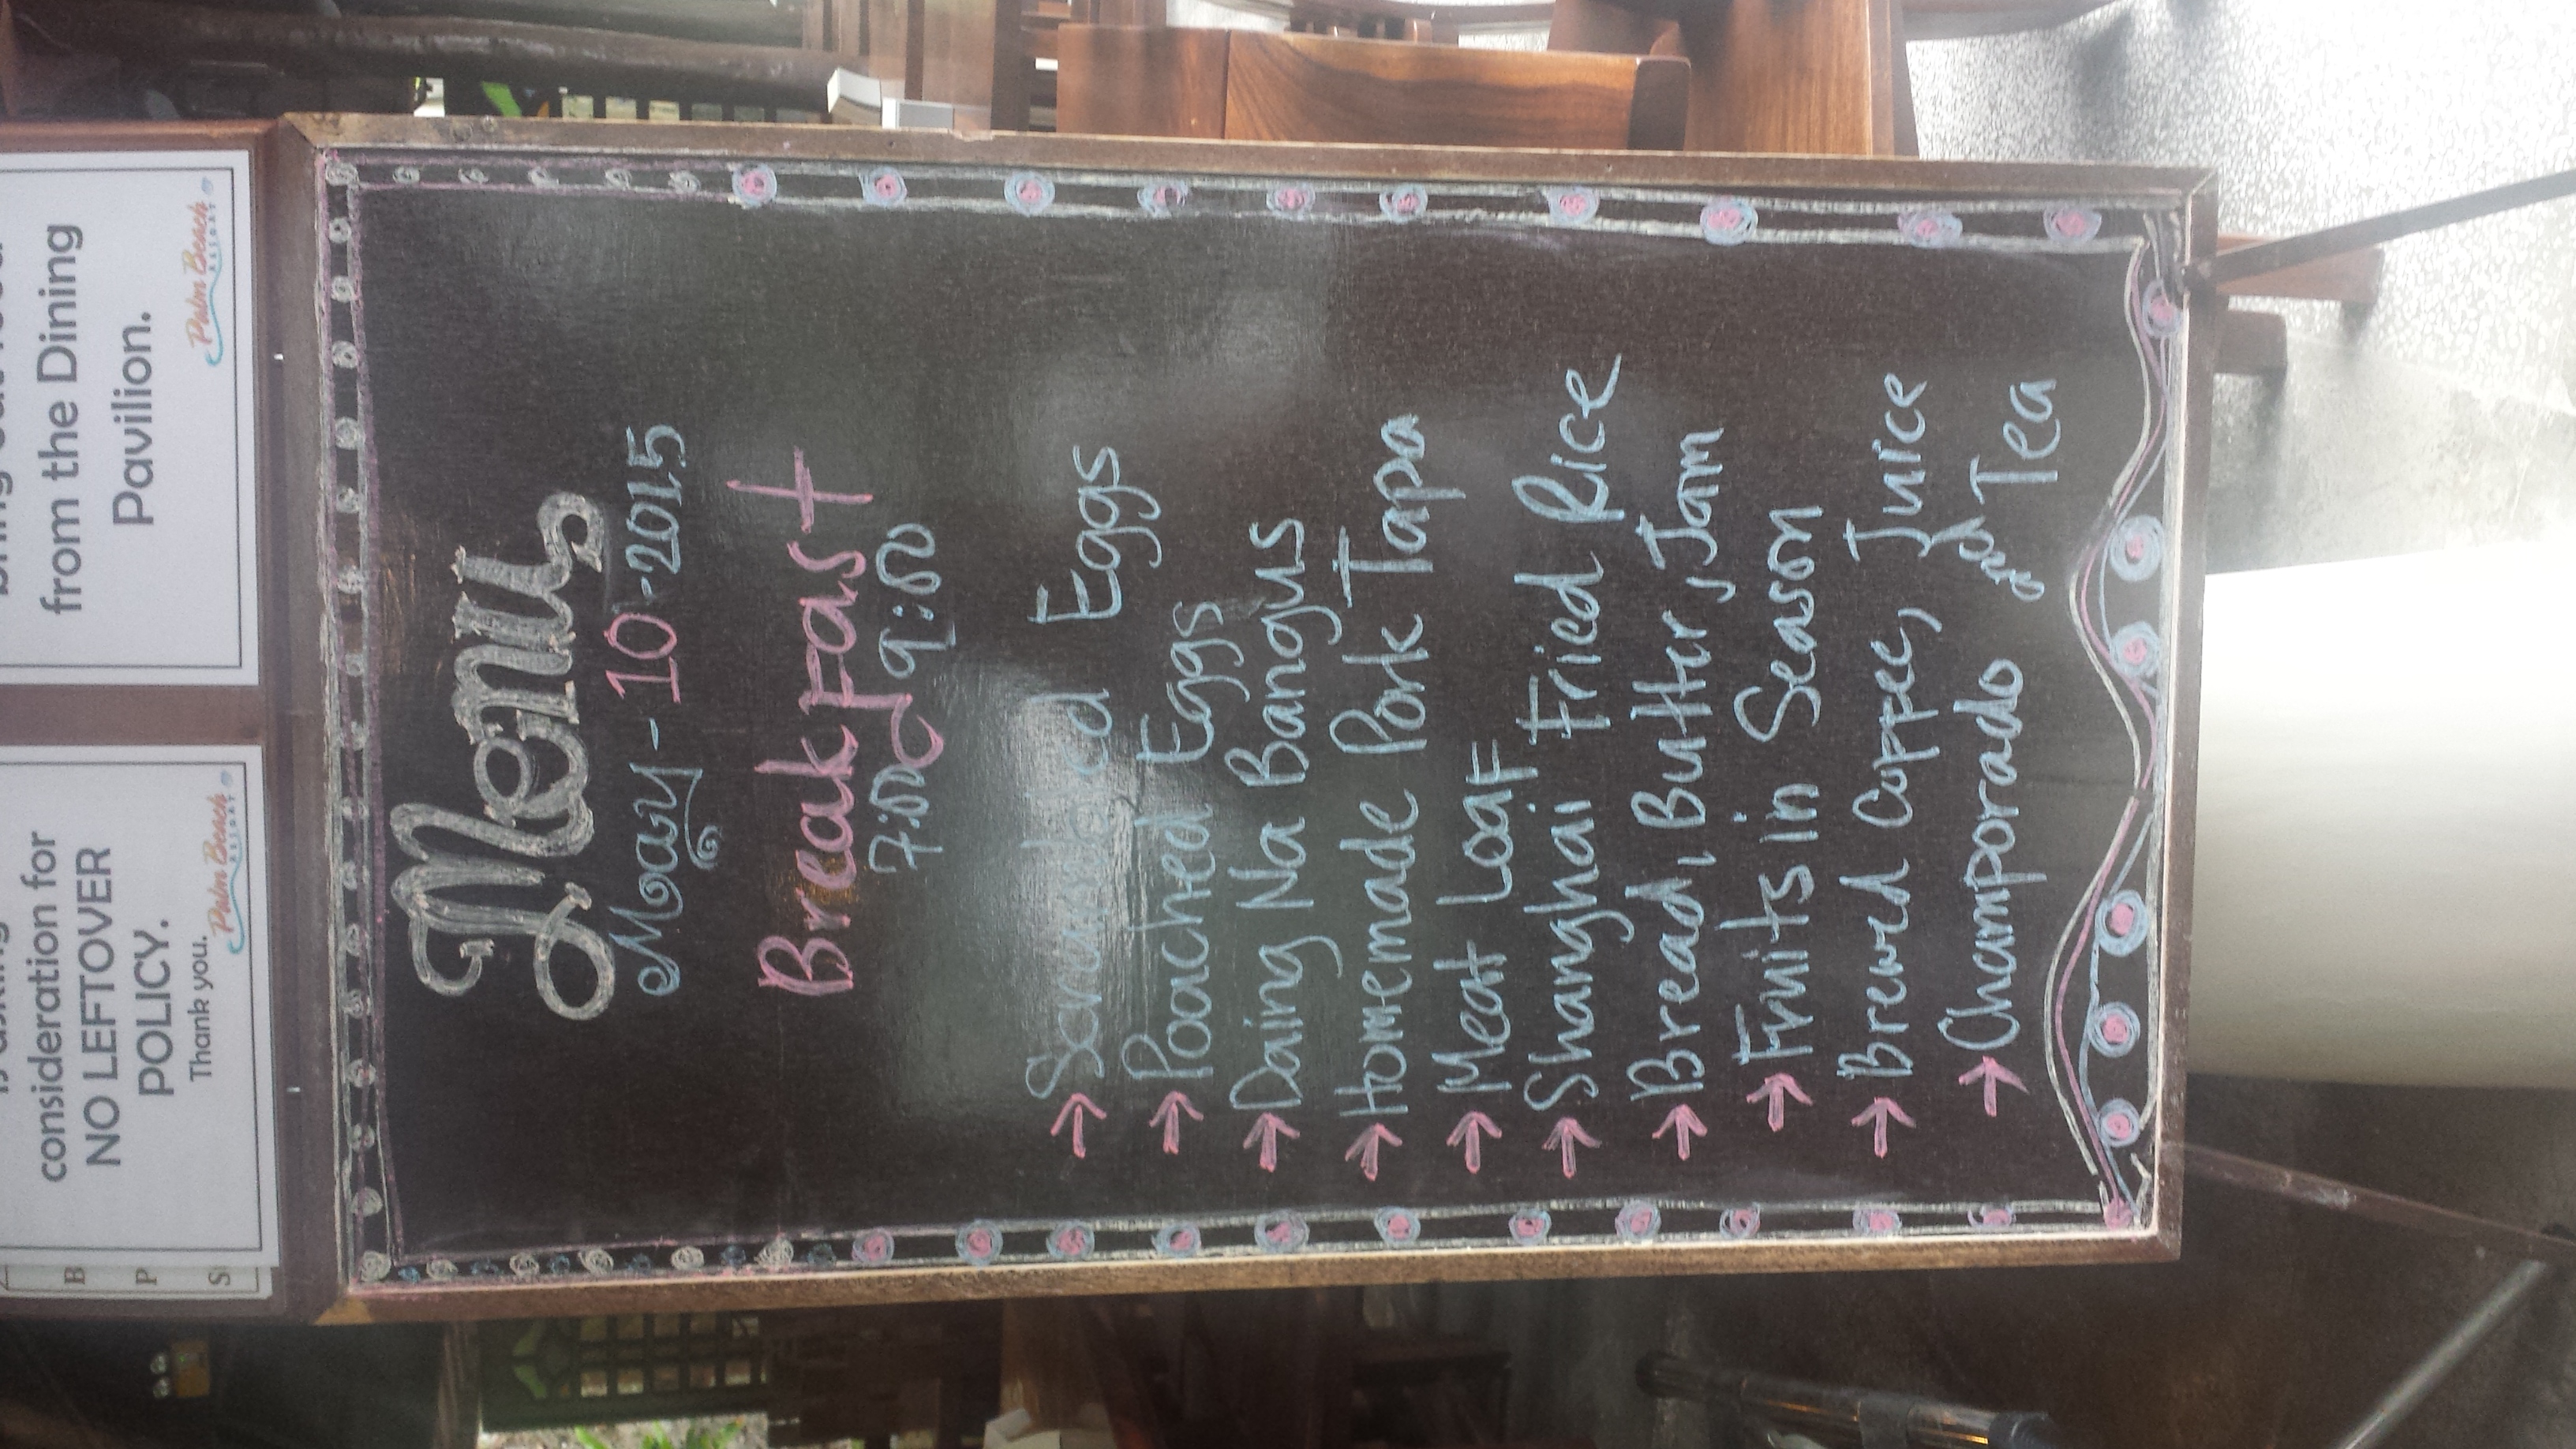 is asking
consideration for
NO LEFTOVER
POLICY.
Thank you.
Palm Beach
RESORT
bring out food
from the Dining
Pavilion.
Palm Beach
RESORT
B
P
S
Menu
May-10-2015
Breakfast
7:00 9:00
Scrambled Eggs
Poached Eggs
Daing Na Bangus
Homemade Pork Tapa
Meat Loaf
Shanghai Fried Rice
Bread, Butter, Jam
Fruits in Season
Brewed Coffee, Juice
Champorado and Tea